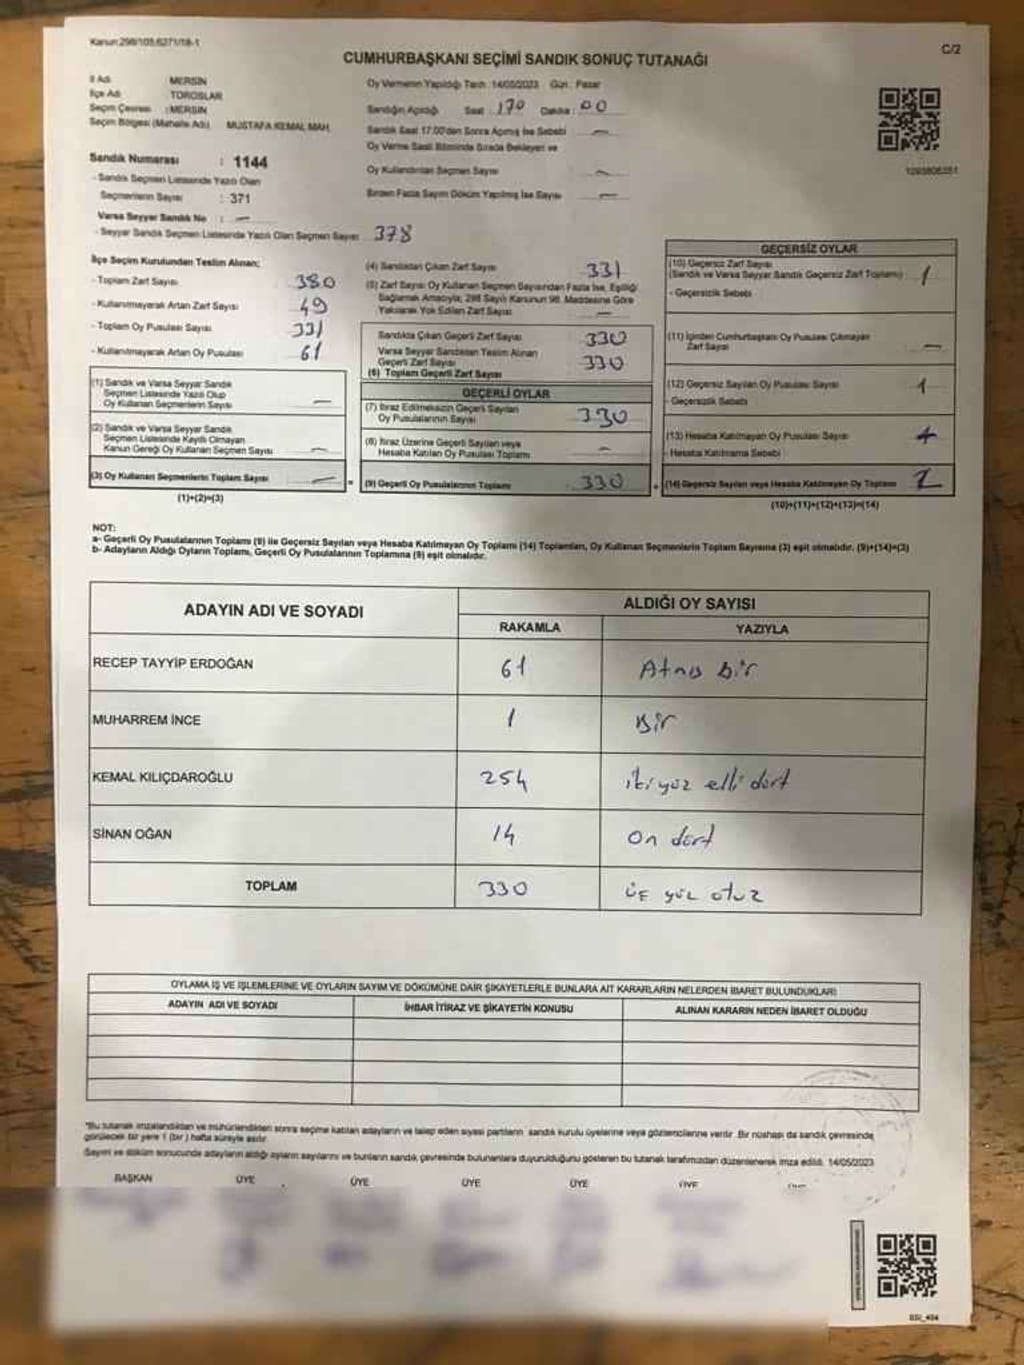 Kanun:298/105;6271/18-1
C/2
CUMHURBAŞKANI SEÇİMİ SANDIK SONUÇ TUTANAĞI
İl Adı MERSİN
İlçe Adı TOROSLAR
Seçim Çevresi : MERSİN
Seçim Bölgesi (Mahalle Adı) MUSTAFA KEMAL MAH.
Oy Vermenin Yapıldığı Tarih : 14/05/2023 Gün : Pazar
Sandığın Açıldığı Saat : 170 Dakika : 00
Sandık Saat 17:00'den Sonra Açılmış İse Sebebi —
Oy Verme Saati Bitiminde Sırada Bekleyen ve
Oy Kullandırılan Seçmen Sayısı —
Birden Fazla Sayım Döküm Yapılmış İse Sayısı —
Sandık Numarası : 1144
- Sandık Seçmen Listesinde Yazılı Olan
Seçmenlerin Sayısı : 371
Varsa Seyyar Sandık No : —
- Seyyar Sandık Seçmen Listesinde Yazılı Olan Seçmen Sayısı 378
İlçe Seçim Kurulundan Teslim Alınan;
- Toplam Zarf Sayısı 380
- Kullanılmayarak Artan Zarf Sayısı 49
- Toplam Oy Pusulası Sayısı 331
- Kullanılmayarak Artan Oy Pusulası 61
(1) Sandık ve Varsa Seyyar Sandık
Seçmen Listesinde Yazılı Olup
Oy Kullanan Seçmenlerin Sayısı —
(2) Sandık ve Varsa Seyyar Sandık
Seçmen Listesinde Kayıtlı Olmayan
Kanun Gereği Oy Kullanan Seçmen Sayısı —
(3) Oy Kullanan Seçmenlerin Toplam Sayısı —
(1)+(2)=(3)
(4) Sandıktan Çıkan Zarf Sayısı 331
(5) Zarf Sayısı Oy Kullanan Seçmen Sayısından Fazla İse, Eşitliği
Sağlamak Amacıyla; 298 Sayılı Kanunun 98. Maddesine Göre
Yakılarak Yok Edilen Zarf Sayısı —
Sandıkta Çıkan Geçerli Zarf Sayısı 330
Varsa Seyyar Sandıktan Teslim Alınan
Geçerli Zarf Sayısı 330
(6) Toplam Geçerli Zarf Sayısı
GEÇERLİ OYLAR
(7) İtiraz Edilmeksizin Geçerli Sayılan
Oy Pusulalarının Sayısı 330
(8) İtiraz Üzerine Geçerli Sayılan veya
Hesaba Katılan Oy Pusulası Toplamı —
= (9) Geçerli Oy Pusulalarının Toplamı 330
GEÇERSİZ OYLAR
(10) Geçersiz Zarf Sayısı
(Sandık ve Varsa Seyyar Sandık Geçersiz Zarf Toplamı) 1
- Geçersizlik Sebebi
(11) İçinden Cumhurbaşkanı Oy Pusulası Çıkmayan
Zarf Sayısı —
(12) Geçersiz Sayılan Oy Pusulası Sayısı 1
- Geçersizlik Sebebi
(13) Hesaba Katılmayan Oy Pusulası Sayısı
- Hesaba Katılmama Sebebi
+ (14) Geçersiz Sayılan veya Hesaba Katılmayan Oy Toplamı 2
(10)+(11)+(12)+(13)=(14)
NOT:
a- Geçerli Oy Pusulalarının Toplamı (9) ile Geçersiz Sayılan veya Hesaba Katılmayan Oy Toplamı (14) Toplamları, Oy Kullanan Seçmenlerin Toplam Sayısına (3) eşit olmalıdır. (9)+(14)=(3)
b- Adayların Aldığı Oyların Toplamı, Geçerli Oy Pusulalarının Toplamına (9) eşit olmalıdır.
ADAYIN ADI VE SOYADI ALDIĞI OY SAYISI
RAKAMLA YAZIYLA
RECEP TAYYİP ERDOĞAN 61 Atmış bir
MUHARREM İNCE 1 Bir
KEMAL KILIÇDAROĞLU 254 ikiyüz elli dört
SİNAN OĞAN 14 on dört
TOPLAM 330 üç yüz otuz
OYLAMA İŞ VE İŞLEMLERİNE VE OYLARIN SAYIM VE DÖKÜMÜNE DAİR ŞİKAYETLERLE BUNLARA AİT KARARLARIN NELERDEN İBARET BULUNDUKLARI
ADAYIN ADI VE SOYADI İHBAR İTİRAZ VE ŞİKAYETİN KONUSU ALINAN KARARIN NEDEN İBARET OLDUĞU
*Bu tutanak imzalandıktan ve mühürlendikten sonra seçime katılan adayların ve talep eden siyasi partilerin sandık kurulu üyelerine veya gözlemcilerine verilir. Bir nüshası da sandık çevresinde
görülecek bir yere 1 (bir) hafta süreyle asılır.
Sayım ve döküm sonucunda adayların aldığı oyların sayılarını ve bunların sandık çevresinde bulunanlara duyurulduğunu gösteren bu tutanak tarafımızdan düzenlenerek imza edildi. 14/05/2023
BAŞKAN ÜYE ÜYE ÜYE ÜYE ÜYE